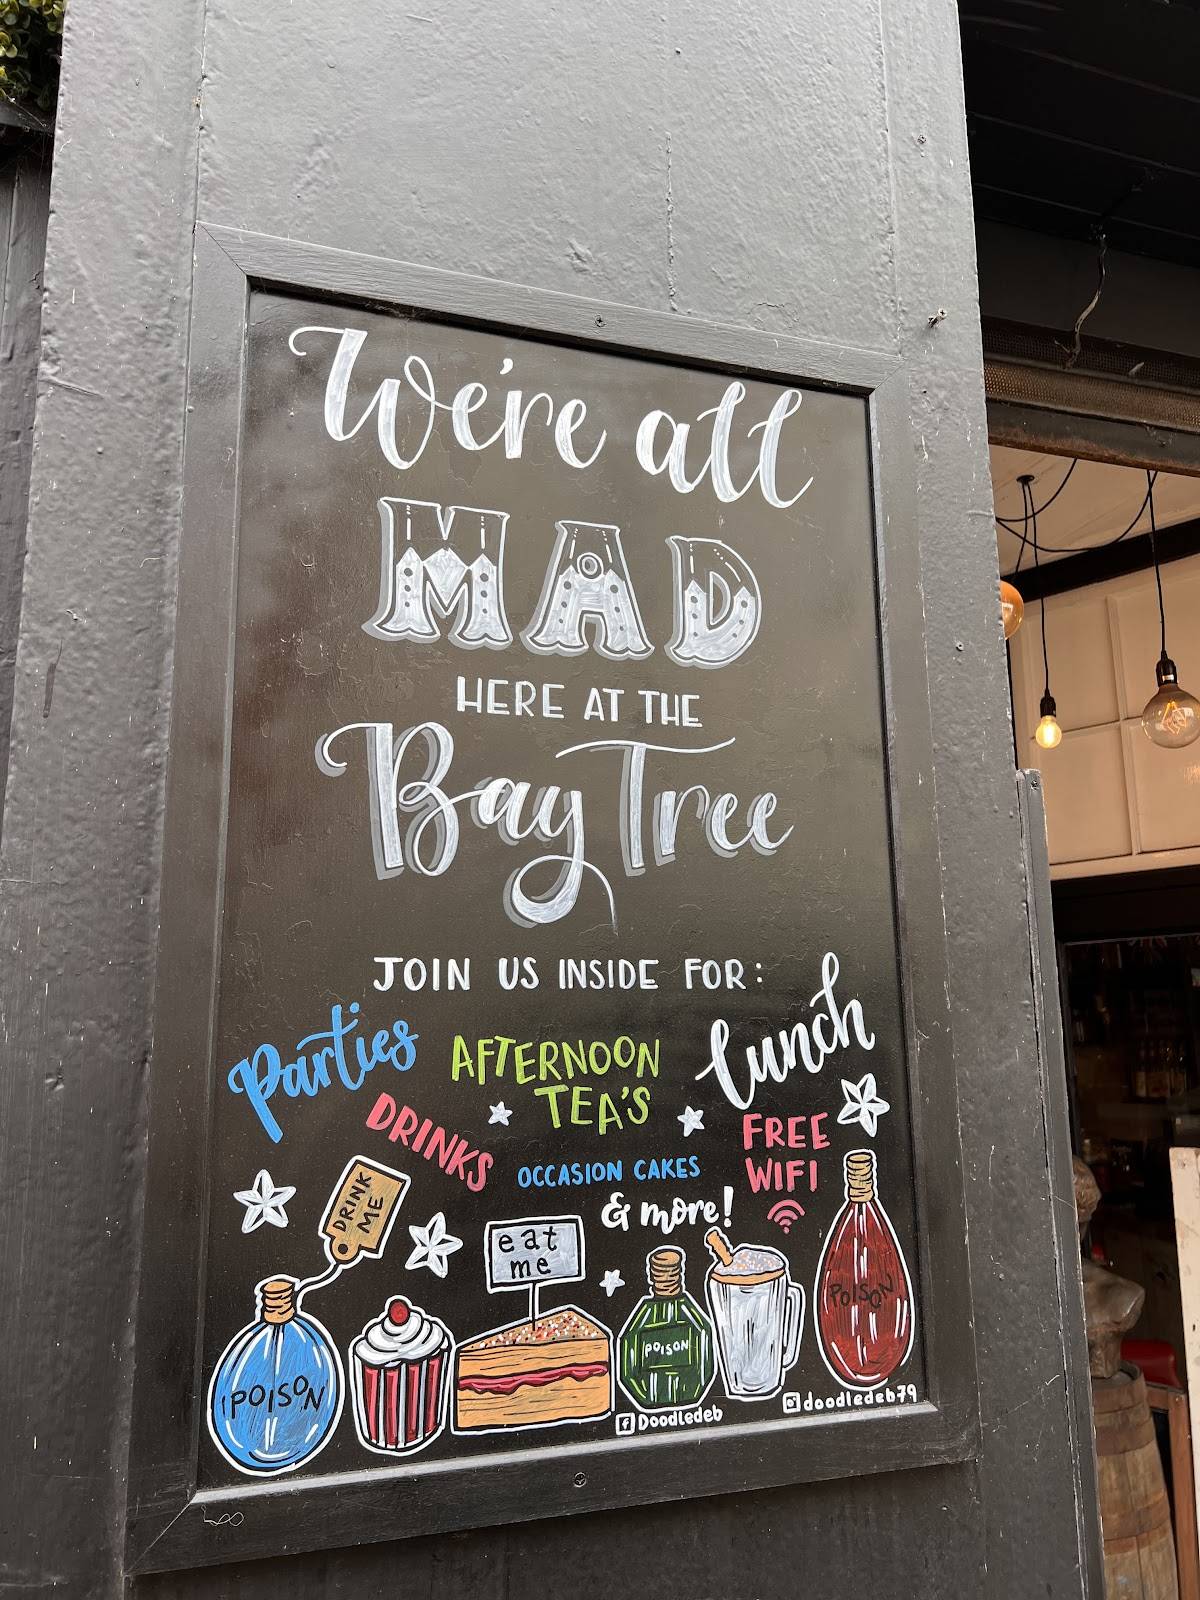 We're all
MAD
HERE AT THE
Bay Tree
JOIN US INSIDE FOR:
Parties
AFTERNOON
TEA'S
Lunch
DRINKS
OCCASION CAKES
& more!
FREE
WIFI
DRINK
ME
eat
me
POISON
POISON
POISON
Doodledeb
doodledeb79